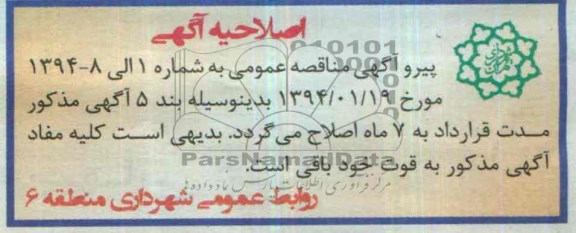 اصلاحیه آگهی
پیرو آگهی مناقصه عمومی به شماره ۱ الی ۸-۱۳۹۴
مورخ ۱۳۹۴/۰۱/۱۹ بدینوسیله بند ۵ آگهی مذکور
مدت قرارداد به ۷ ماه اصلاح می گردد. بدیهی است کلیه مفاد
آگهی مذکور به قوت خود باقی است.
ParsNamadData
مرکز فرآوری اطلاعات پارس نماد داده ها
روابط عمومی شهرداری منطقه ۶